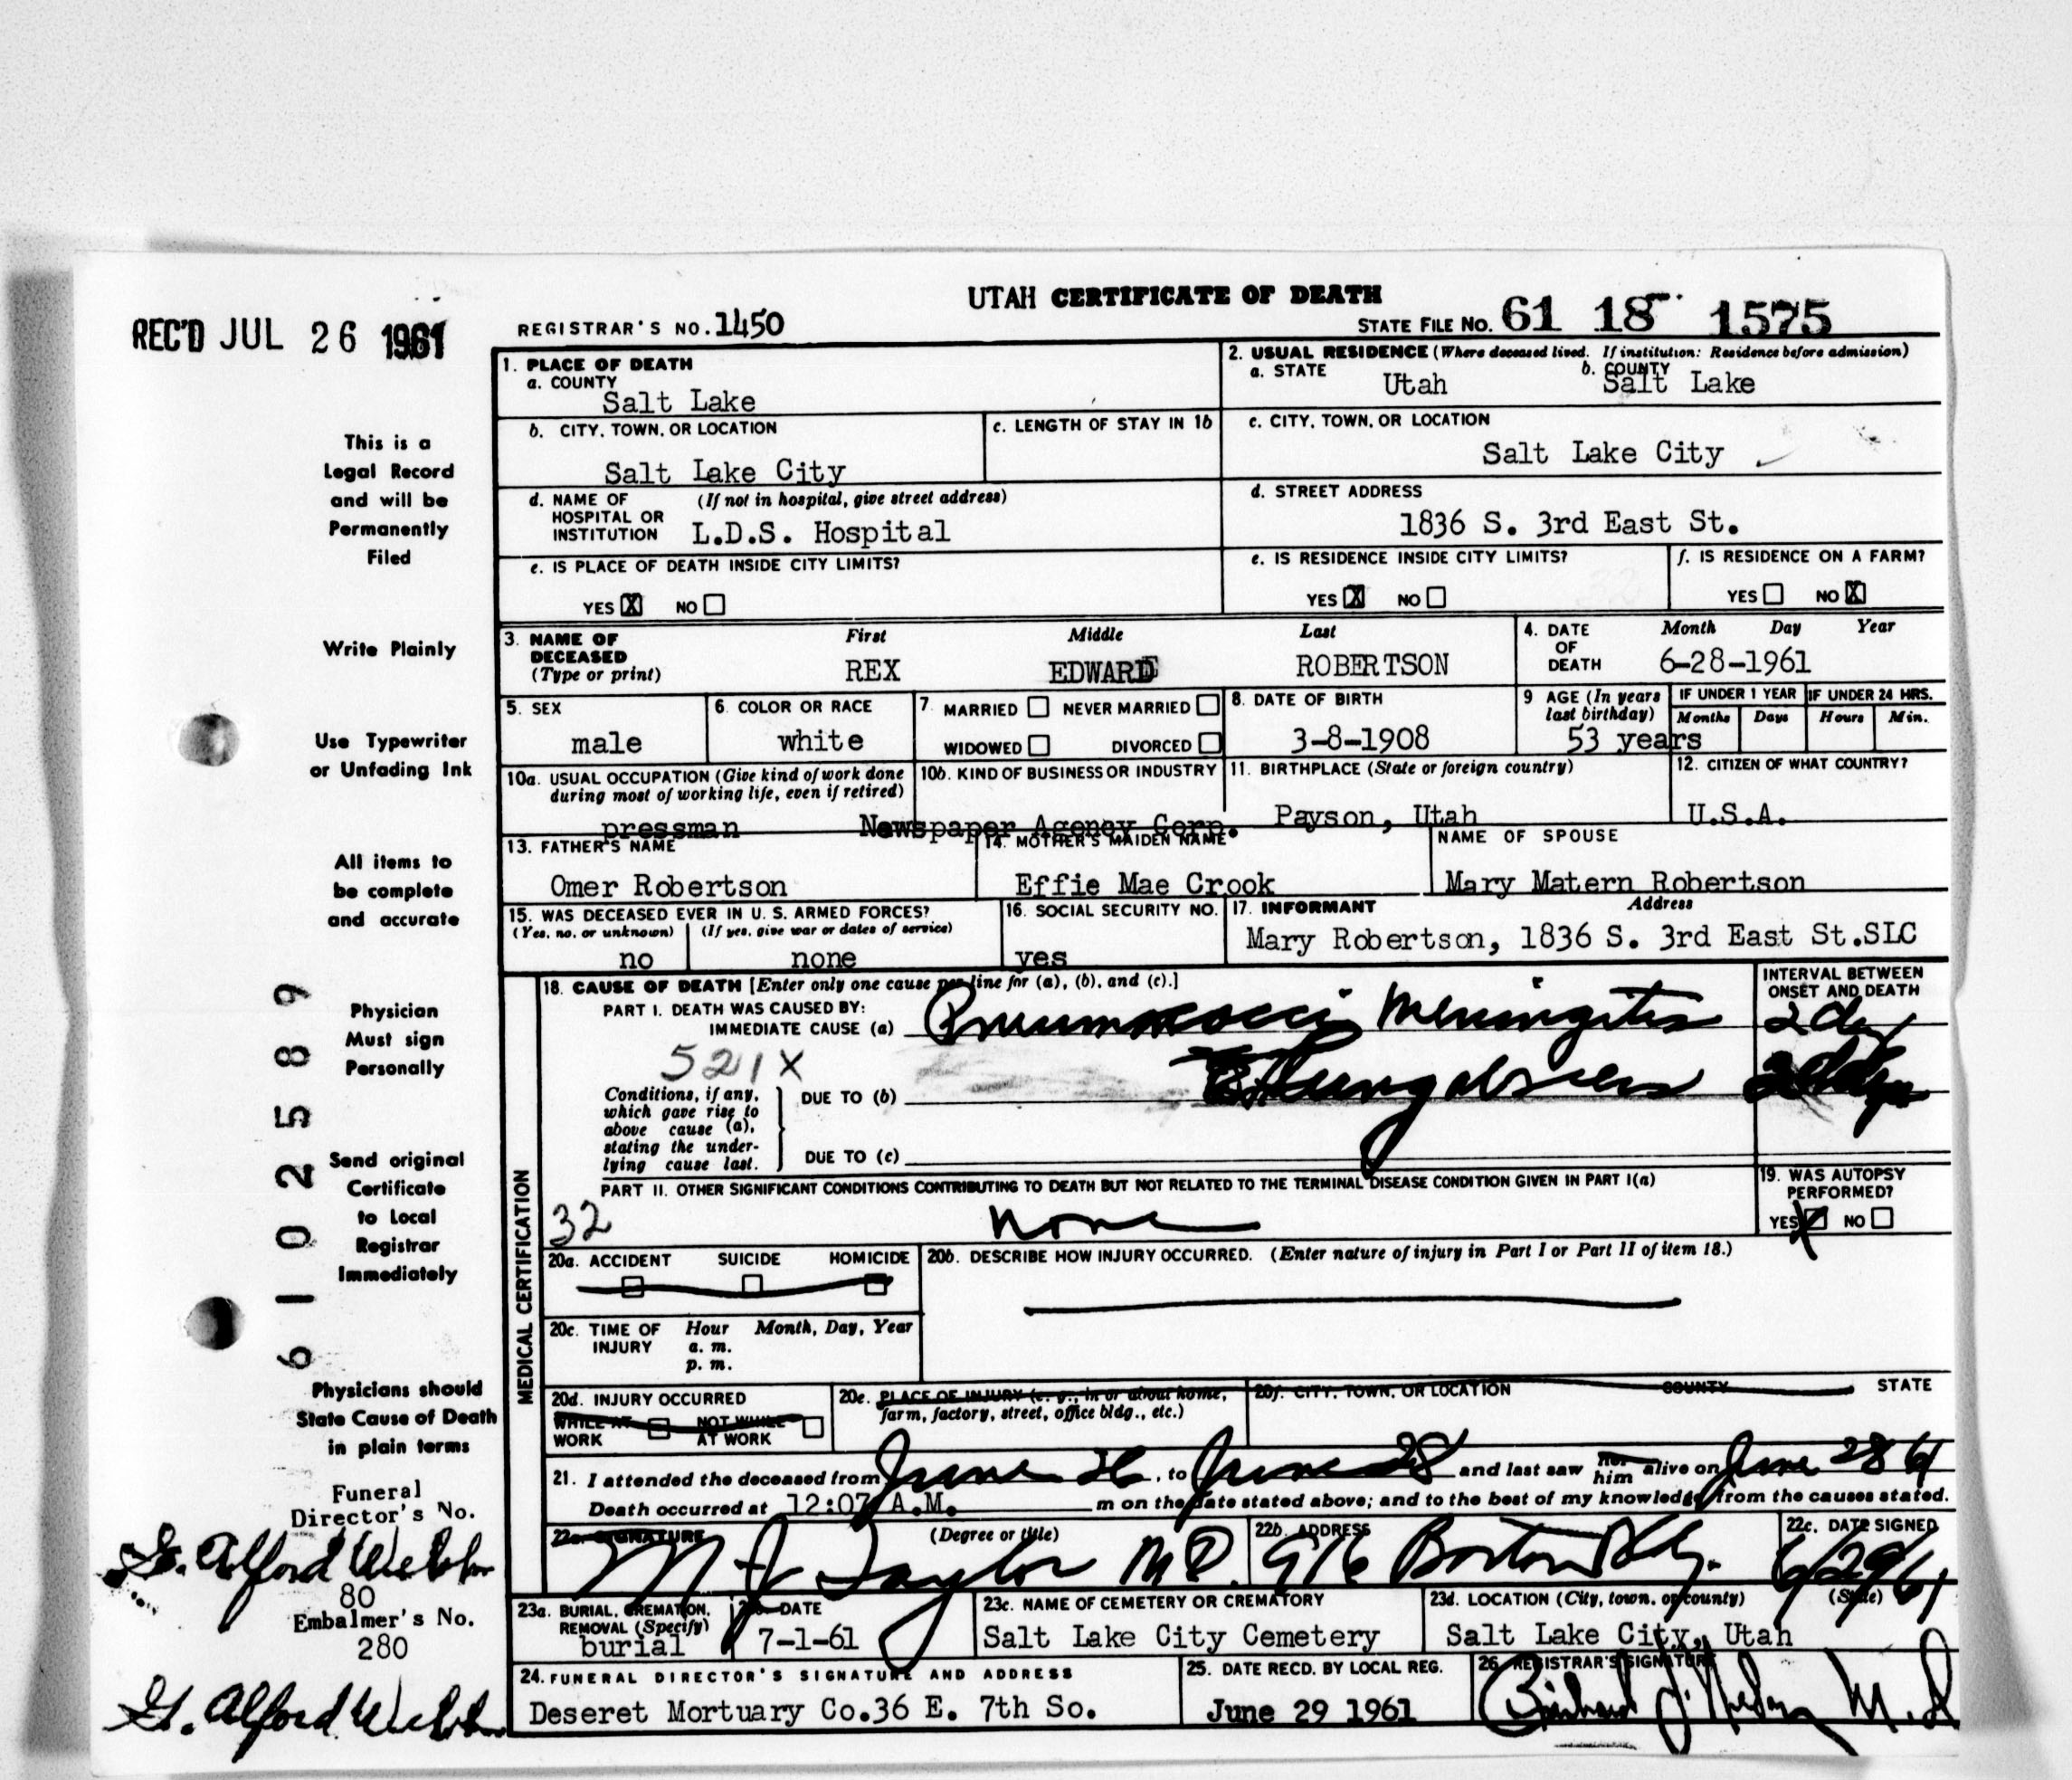 UTAH CERTIFICATE OF DEATH
REC'D JUL 26 1961
REGISTRAR'S NO. 1450
STATE FILE NO. 61 18 1575
This is a
Legal Record
and will be
Permanently
Filed
Write Plainly
Use Typewriter
or Unfading Ink
All items to
be complete
and accurate
Physician
Must sign
Personally
Send original
Certificate
to Local
Registrar
Immediately
Physicians should
State Cause of Death
in plain terms
Funeral
Director's No.
G. Alford Webb
80
Embalmer's No.
280
G. Alford Webb
6102589
1. PLACE OF DEATH
a. COUNTY
Salt Lake
2. USUAL RESIDENCE (Where deceased lived. If institution: Residence before admission)
a. STATE Utah b. COUNTY Salt Lake
b. CITY, TOWN, OR LOCATION
Salt Lake City
c. LENGTH OF STAY IN 1b
c. CITY, TOWN, OR LOCATION
Salt Lake City
d. NAME OF (If not in hospital, give street address)
HOSPITAL OR
INSTITUTION L.D.S. Hospital
d. STREET ADDRESS
1836 S. 3rd East St.
e. IS PLACE OF DEATH INSIDE CITY LIMITS?
YES X NO
e. IS RESIDENCE INSIDE CITY LIMITS?
YES X NO
f. IS RESIDENCE ON A FARM?
YES NO X
3. NAME OF
DECEASED
(Type or print)
First Middle Last
REX EDWARD ROBERTSON
4. DATE
OF
DEATH
Month Day Year
6-28-1961
5. SEX
male
6. COLOR OR RACE
white
7. MARRIED NEVER MARRIED
WIDOWED DIVORCED
8. DATE OF BIRTH
3-8-1908
9 AGE (In years
last birthday)
53 years
IF UNDER 1 YEAR IF UNDER 24 HRS.
Months Days Hours Min.
10a. USUAL OCCUPATION (Give kind of work done
during most of working life, even if retired)
pressman
10b. KIND OF BUSINESS OR INDUSTRY
Newspaper Agency Corp.
11. BIRTHPLACE (State or foreign country)
Payson, Utah
12. CITIZEN OF WHAT COUNTRY?
U.S.A.
13. FATHER'S NAME
Omer Robertson
14. MOTHER'S MAIDEN NAME
Effie Mae Crook
NAME OF SPOUSE
Mary Matern Robertson
15. WAS DECEASED EVER IN U. S. ARMED FORCES?
(Yes, no, or unknown) (If yes, give war or dates of service)
no none
16. SOCIAL SECURITY NO.
yes
17. INFORMANT Address
Mary Robertson, 1836 S. 3rd East St.SLC
MEDICAL CERTIFICATION
18. CAUSE OF DEATH [Enter only one cause per line for (a), (b), and (c).]
INTERVAL BETWEEN
ONSET AND DEATH
PART I. DEATH WAS CAUSED BY:
IMMEDIATE CAUSE (a) Pneumococci Meningitis 2 day
521X
Conditions, if any,
which gave rise to
above cause (a),
stating the under-
lying cause last.
DUE TO (b) Lung abscess
DUE TO (c)
PART II. OTHER SIGNIFICANT CONDITIONS CONTRIBUTING TO DEATH BUT NOT RELATED TO THE TERMINAL DISEASE CONDITION GIVEN IN PART I(a)
32 none
19. WAS AUTOPSY
PERFORMED?
YES X NO
20a. ACCIDENT SUICIDE HOMICIDE
20b. DESCRIBE HOW INJURY OCCURRED. (Enter nature of injury in Part I or Part II of item 18.)
20c. TIME OF
INJURY
Hour Month, Day, Year
a. m.
p. m.
20d. INJURY OCCURRED
WHILE AT
WORK
NOT WHILE
AT WORK
20e. PLACE OF INJURY (e. g., in or about home,
farm, factory, street, office bldg., etc.)
20f. CITY, TOWN, OR LOCATION COUNTY STATE
21. I attended the deceased from June 26, to June 28 and last saw her him alive on June 28 61
Death occurred at 12:07 A.M. m on the date stated above; and to the best of my knowledge, from the causes stated.
22a. SIGNATURE (Degree or title)
M J Taylor MD.
22b. ADDRESS
916 Boston Bldg.
22c. DATE SIGNED
6/29/61
23a. BURIAL, CREMATION,
REMOVAL (Specify)
burial
DATE
7-1-61
23c. NAME OF CEMETERY OR CREMATORY
Salt Lake City Cemetery
23d. LOCATION (City, town, or county) (State)
Salt Lake City, Utah
24. FUNERAL DIRECTOR'S SIGNATURE AND ADDRESS
Deseret Mortuary Co.36 E. 7th So.
25. DATE RECD. BY LOCAL REG.
June 29 1961
26. REGISTRAR'S SIGNATURE
M.D